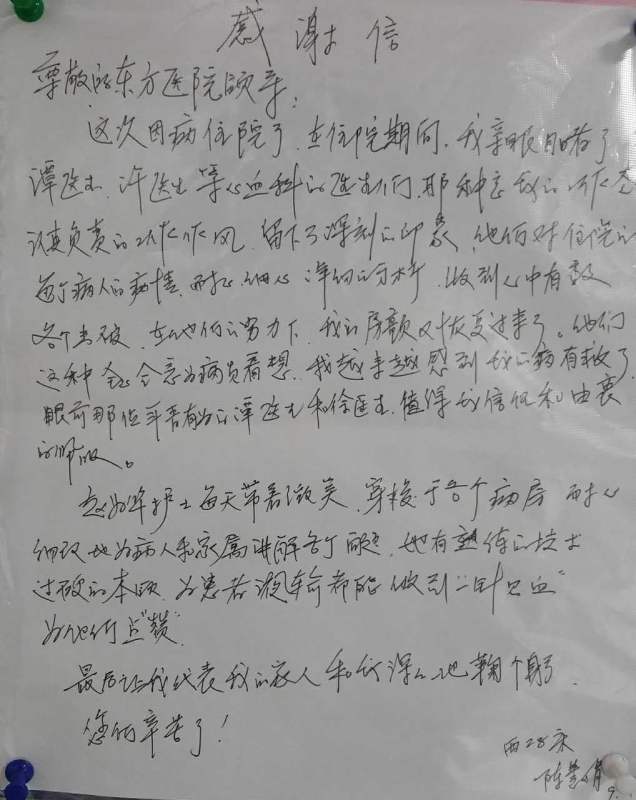 感谢信
尊敬的东方医院领导:
这次因病住院了,在住院期间,我亲眼目睹了
谭医生、许医生等心血科的医生们,那种忘我的工作态
认真负责的工作作风,留下了深刻的印象,他们对住院的
每个病人的病情,耐心、细心、详细的分析,做到心中有数
各个击破,在他们的努力下,我的房颤又恢复过来了。他们
这种全心全意为病员着想,我越来越感到我的病有救了
眼前那位年青有为的谭医生和徐医生,值得我信任和由衷
的佩服。
护士每天带着微笑,穿梭于各个病房,耐心
细致地为病人和家属讲解各个问题,她有熟练的技术
过硬的本领,为患者输都能做到"一针见血"
为他们点"赞"
最后让我代表我的家人和我深深地鞠个躬。
您们辛苦了!
西28床
陈